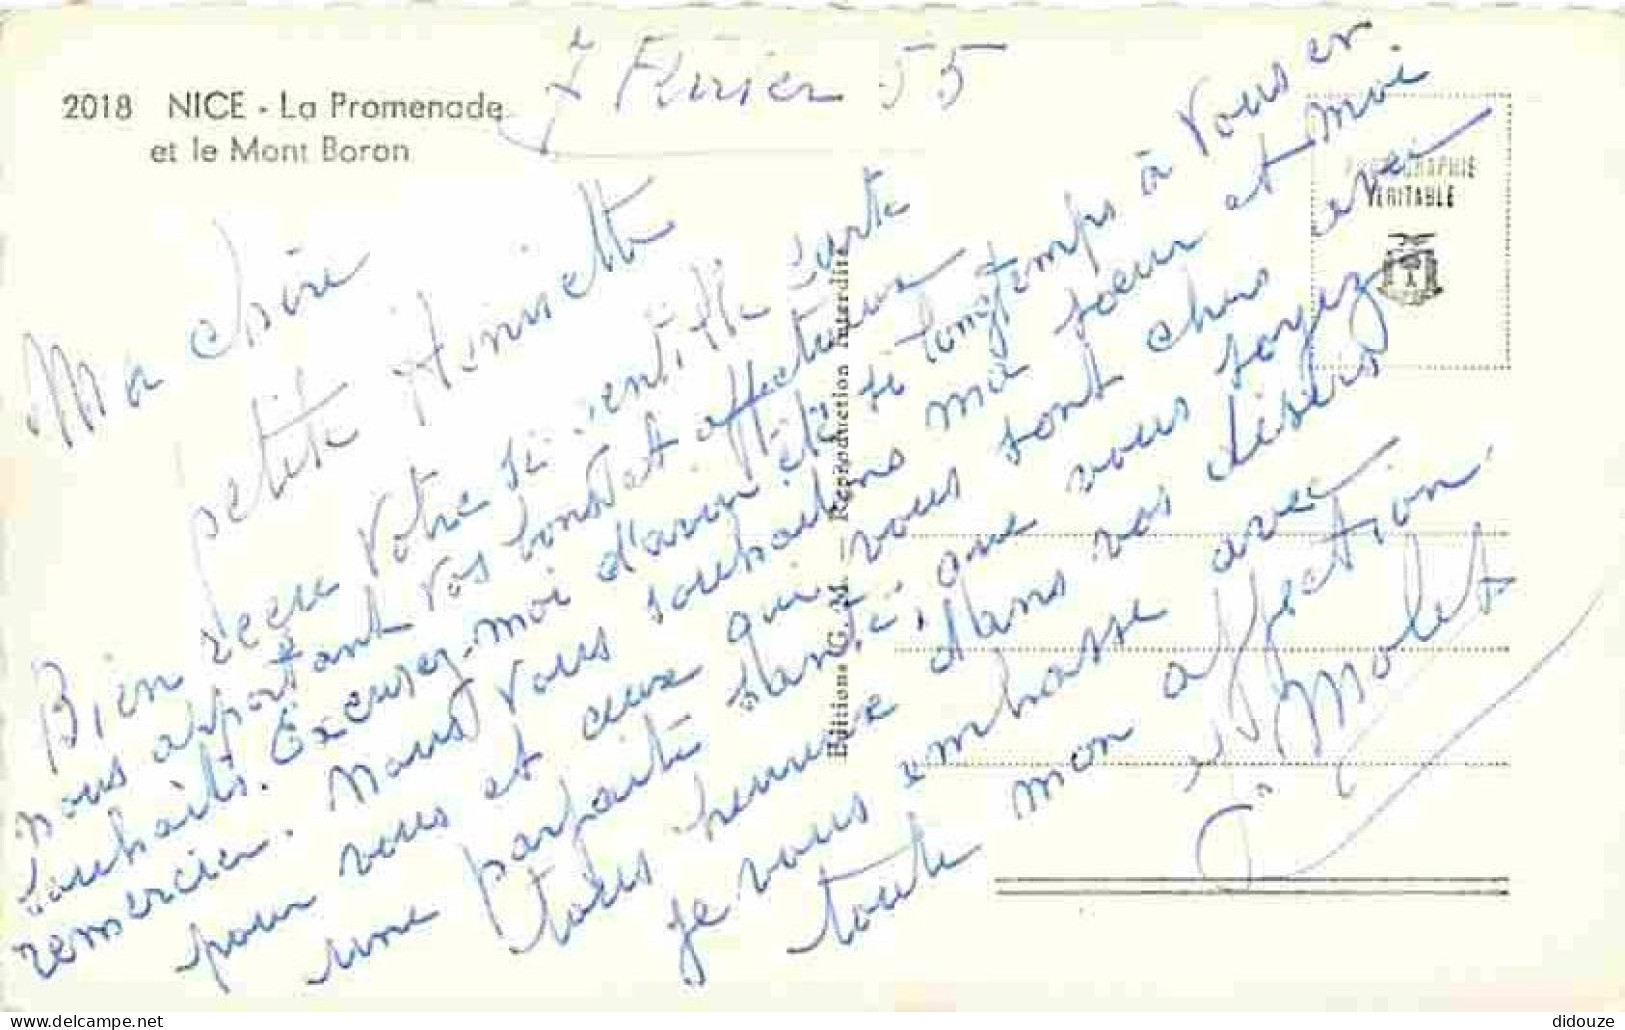 2018 NICE - La Promenade
et le Mont Boron
7 Février 55
PHOTOGRAPHIE
VERITABLE
Editions G. M. — Reproduction Interdite
Ma chère
petite Henriette
Bien reçu votre si gentille carte
nous apportant vos bons et affectueux
souhaits. Excusez-moi d'avoir été si longtemps à vous en
remercier. Nous vous souhaitons ma soeur et moi
pour vous et ceux qui vous sont chers avec
une parfaite santé, que vous soyez
tous heureux dans vos désirs
Je vous embrasse avec
toute mon affection
Molet
didouze